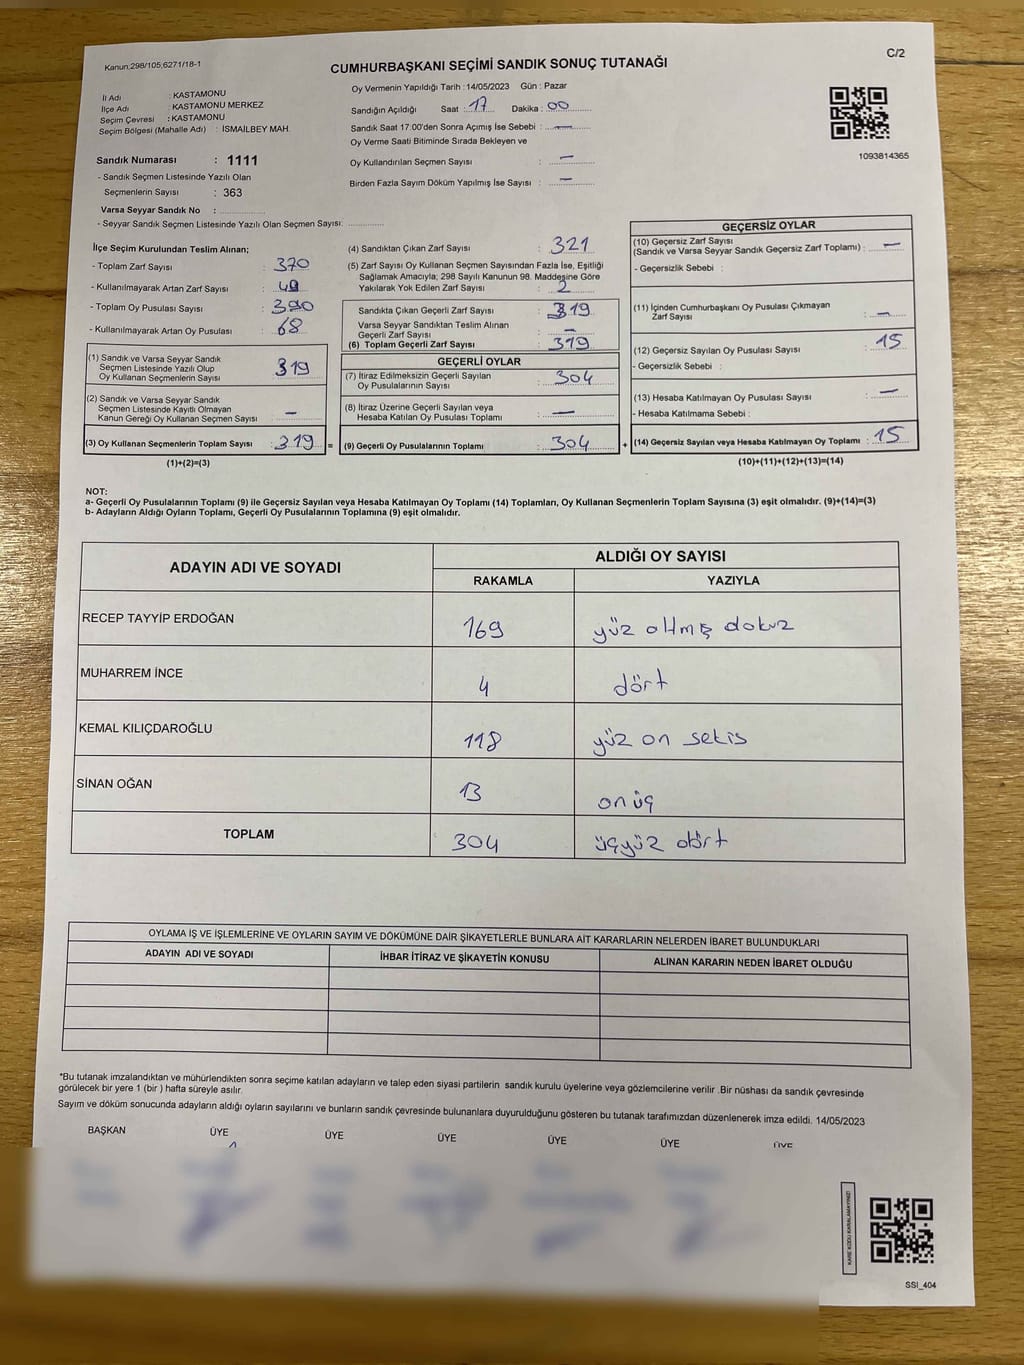 C/2
Kanun;298/105;6271/18-1
CUMHURBAŞKANI SEÇİMİ SANDIK SONUÇ TUTANAĞI
İl Adı : KASTAMONU
İlçe Adı : KASTAMONU MERKEZ
Seçim Çevresi : KASTAMONU
Seçim Bölgesi (Mahalle Adı) : İSMAİLBEY MAH.
Oy Vermenin Yapıldığı Tarih : 14/05/2023 Gün : Pazar
Sandığın Açıldığı Saat : 17 Dakika : 00
Sandık Saat 17:00'den Sonra Açımış İse Sebebi : —
Oy Verme Saati Bitiminde Sırada Bekleyen ve
Oy Kullandırılan Seçmen Sayısı : —
Birden Fazla Sayım Döküm Yapılmış İse Sayısı : —
1093814365
Sandık Numarası : 1111
- Sandık Seçmen Listesinde Yazılı Olan
Seçmenlerin Sayısı : 363
Varsa Seyyar Sandık No :
- Seyyar Sandık Seçmen Listesinde Yazılı Olan Seçmen Sayısı:
İlçe Seçim Kurulundan Teslim Alınan;
- Toplam Zarf Sayısı : 370
- Kullanılmayarak Artan Zarf Sayısı : 49
- Toplam Oy Pusulası Sayısı : 390
- Kullanılmayarak Artan Oy Pusulası : 68
(1) Sandık ve Varsa Seyyar Sandık
Seçmen Listesinde Yazılı Olup
Oy Kullanan Seçmenlerin Sayısı : 319
(2) Sandık ve Varsa Seyyar Sandık
Seçmen Listesinde Kayıtlı Olmayan
Kanun Gereği Oy Kullanan Seçmen Sayısı : —
(3) Oy Kullanan Seçmenlerin Toplam Sayısı : 319 =
(1)+(2)=(3)
(4) Sandıktan Çıkan Zarf Sayısı : 321
(5) Zarf Sayısı Oy Kullanan Seçmen Sayısından Fazla İse, Eşitliği
Sağlamak Amacıyla; 298 Sayılı Kanunun 98. Maddesine Göre
Yakılarak Yok Edilen Zarf Sayısı : 2
Sandıkta Çıkan Geçerli Zarf Sayısı : 319
Varsa Seyyar Sandıktan Teslim Alınan
Geçerli Zarf Sayısı : —
(6) Toplam Geçerli Zarf Sayısı : 319
GEÇERLİ OYLAR
(7) İtiraz Edilmeksizin Geçerli Sayılan
Oy Pusulalarının Sayısı : 304
(8) İtiraz Üzerine Geçerli Sayılan veya
Hesaba Katılan Oy Pusulası Toplamı : —
(9) Geçerli Oy Pusulalarının Toplamı : 304 +
GEÇERSİZ OYLAR
(10) Geçersiz Zarf Sayısı
(Sandık ve Varsa Seyyar Sandık Geçersiz Zarf Toplamı) : —
- Geçersizlik Sebebi :
(11) İçinden Cumhurbaşkanı Oy Pusulası Çıkmayan
Zarf Sayısı : —
(12) Geçersiz Sayılan Oy Pusulası Sayısı : 15
- Geçersizlik Sebebi :
(13) Hesaba Katılmayan Oy Pusulası Sayısı : —
- Hesaba Katılmama Sebebi :
(14) Geçersiz Sayılan veya Hesaba Katılmayan Oy Toplamı : 15
(10)+(11)+(12)+(13)=(14)
NOT:
a- Geçerli Oy Pusulalarının Toplamı (9) ile Geçersiz Sayılan veya Hesaba Katılmayan Oy Toplamı (14) Toplamları, Oy Kullanan Seçmenlerin Toplam Sayısına (3) eşit olmalıdır. (9)+(14)=(3)
b- Adayların Aldığı Oyların Toplamı, Geçerli Oy Pusulalarının Toplamına (9) eşit olmalıdır.
ADAYIN ADI VE SOYADI
ALDIĞI OY SAYISI
RAKAMLA YAZIYLA
RECEP TAYYİP ERDOĞAN 169 yüz altmış dokuz
MUHARREM İNCE 4 dört
KEMAL KILIÇDAROĞLU 118 yüz on sekis
SİNAN OĞAN 13 onüç
TOPLAM 304 üçyüz dört
OYLAMA İŞ VE İŞLEMLERİNE VE OYLARIN SAYIM VE DÖKÜMÜNE DAİR ŞİKAYETLERLE BUNLARA AİT KARARLARIN NELERDEN İBARET BULUNDUKLARI
ADAYIN ADI VE SOYADI İHBAR İTİRAZ VE ŞİKAYETİN KONUSU ALINAN KARARIN NEDEN İBARET OLDUĞU
*Bu tutanak imzalandıktan ve mühürlendikten sonra seçime katılan adayların ve talep eden siyasi partilerin sandık kurulu üyelerine veya gözlemcilerine verilir .Bir nüshası da sandık çevresinde
görülecek bir yere 1 (bir ) hafta süreyle asılır.
Sayım ve döküm sonucunda adayların aldığı oyların sayılarını ve bunların sandık çevresinde bulunanlara duyurulduğunu gösteren bu tutanak tarafımızdan düzenlenerek imza edildi. 14/05/2023
BAŞKAN ÜYE ÜYE ÜYE ÜYE ÜYE ÜYE
KARE KODU KARALAMAYINIZ!
SSI_404